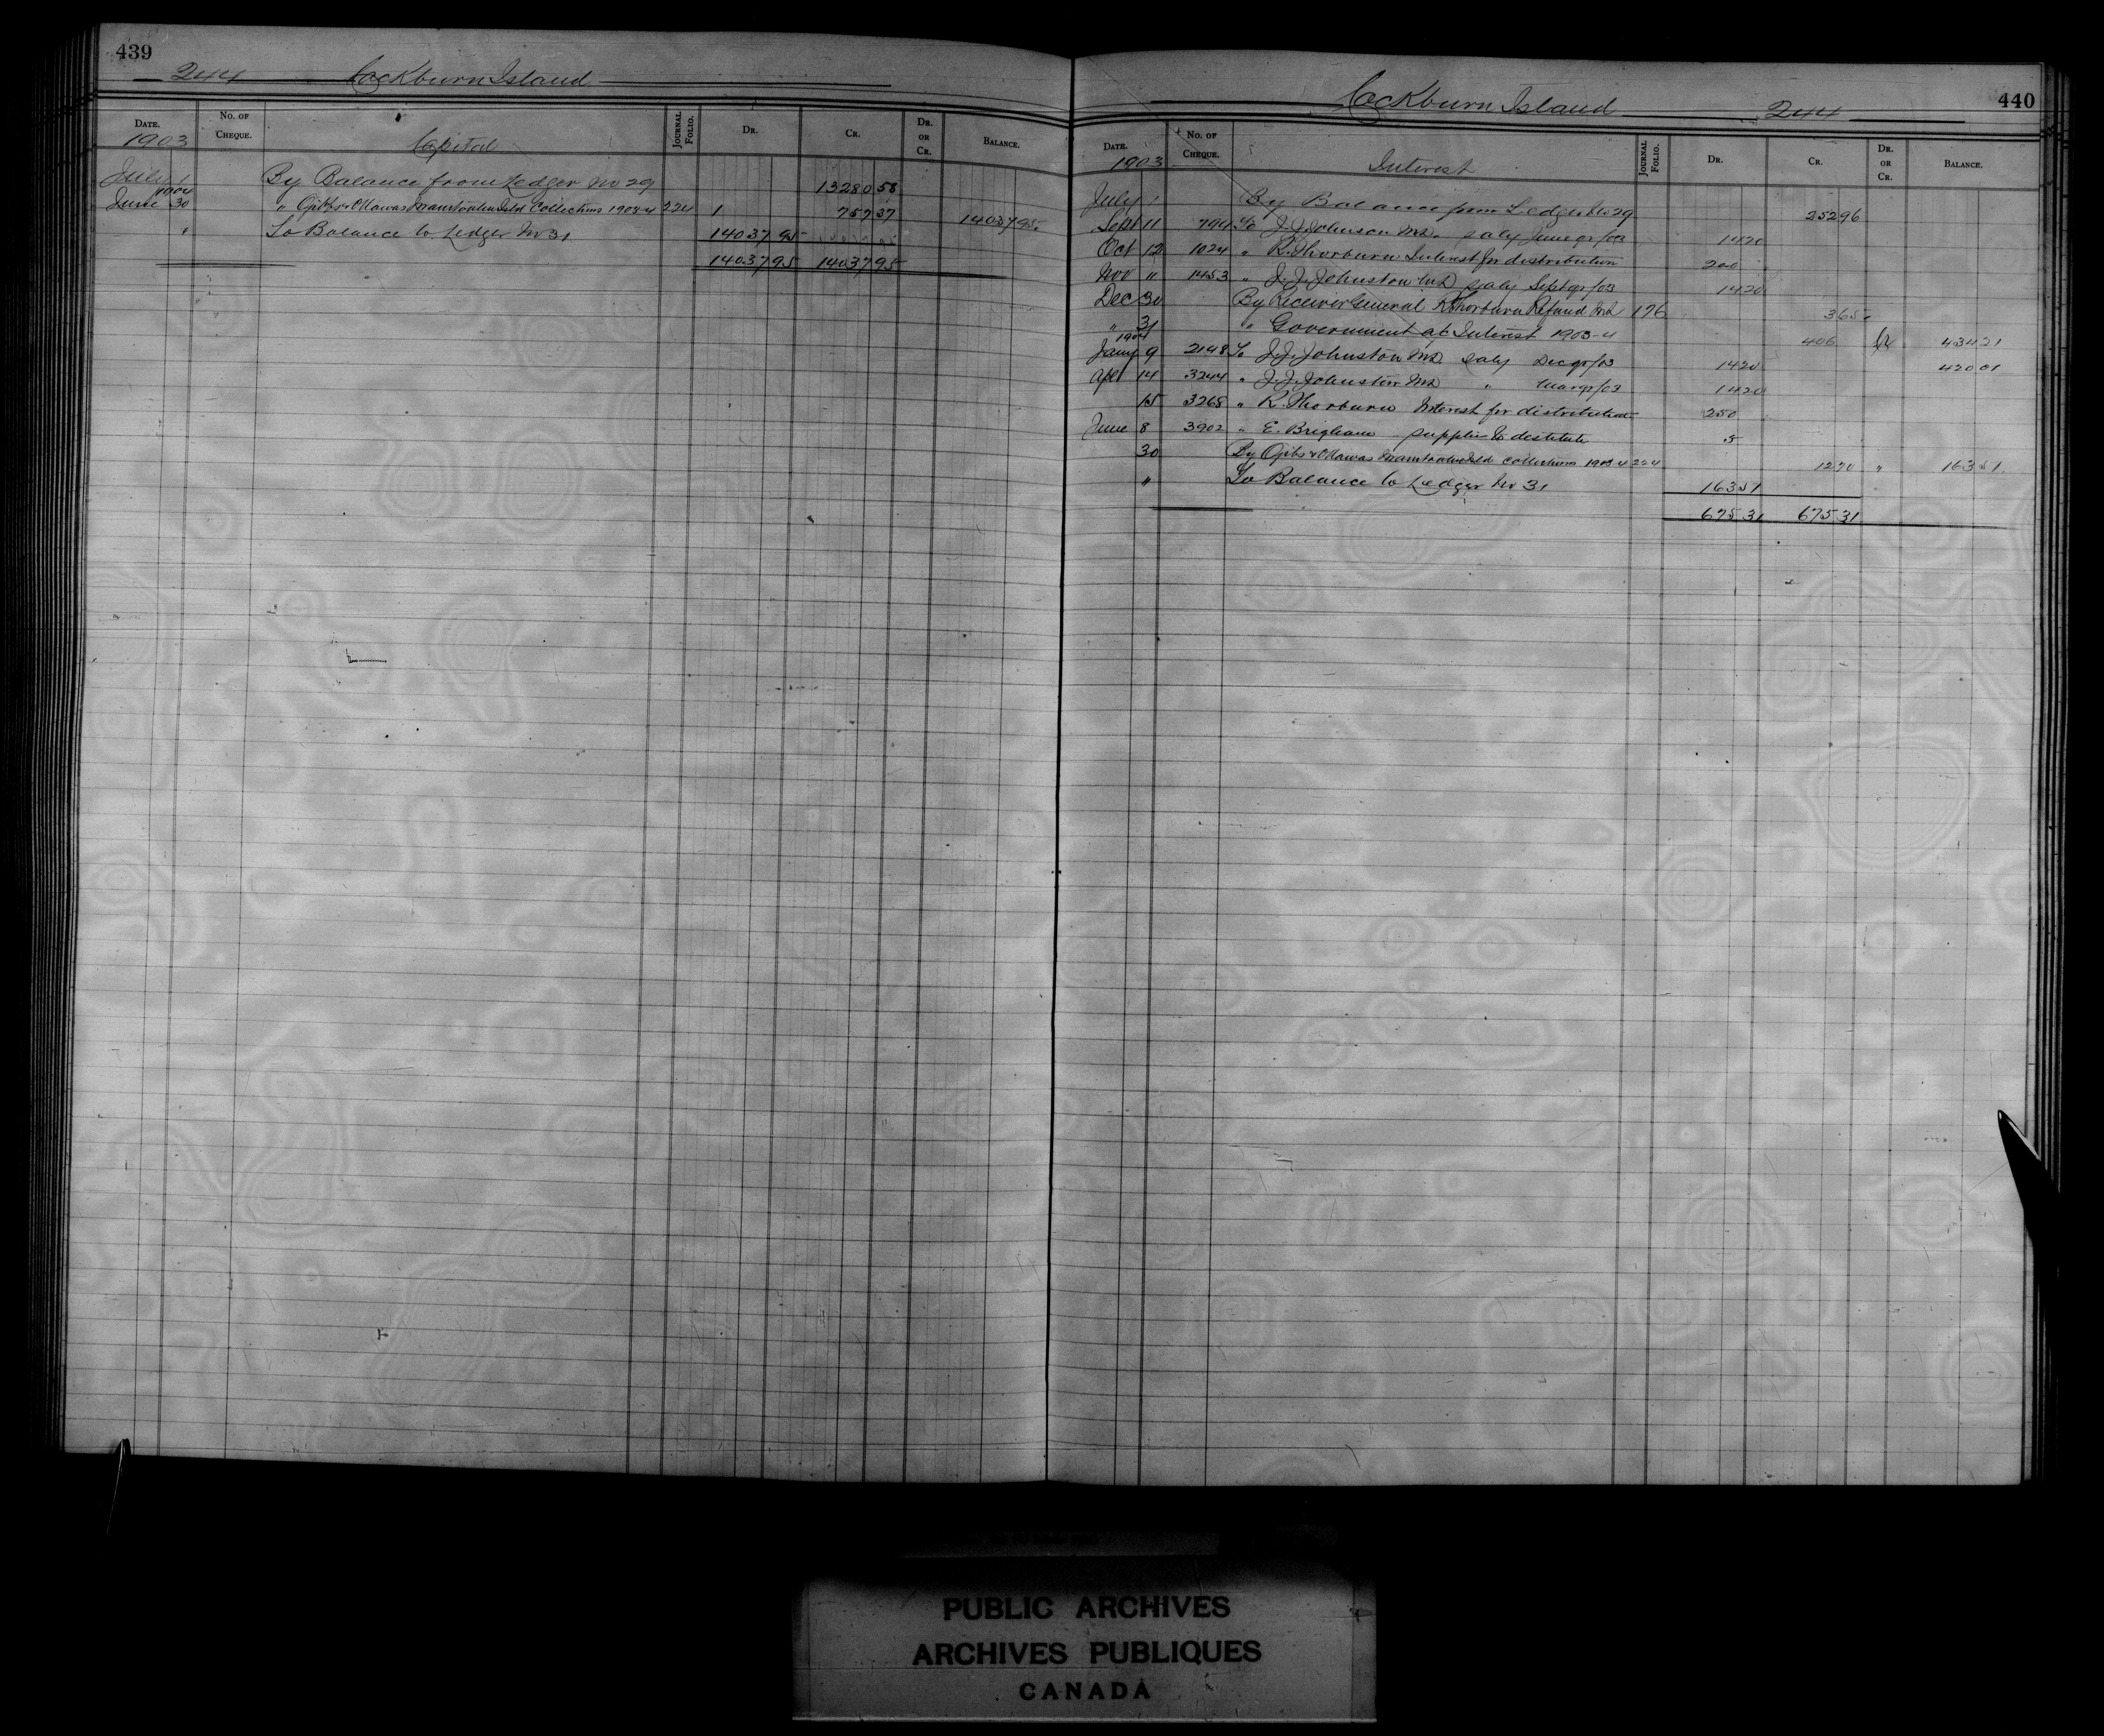 439
244 Cockburn Island
DATE. No. OF CHEQUE. JOURNAL FOLIO. DR. CR. DR. OR CR. BALANCE.
1903 Capital
July 1 By Balance from Ledger No 29 13280 58
1904
June 30 " Ojibs & Ottawas Manitoulin Isld Collections 1903-4 224 1 757 37 14037 95
" To Balance to Ledger No 31 14037 95
14037 95 14037 95
Cockburn Island 244 440
DATE. No. OF CHEQUE. JOURNAL FOLIO. DR. CR. DR. OR CR. BALANCE.
1903 Interest
July 1 By Balance from Ledger No 29 252 96
Sept 11 794 To J.J. Johnson Md. Saly June qr/03 14 20
Oct 12 1024 " R. Thorburn Interest for distribution 200
Nov 11 1453 " J.J. Johnston Md Saly Septqr/03 14 20
Dec 30 By Receiver General R Thorburn Refund Md 176 3 65
" 31 " Government a/c Interest 1903-4 406 Cr 434 21
1904
Jany 9 2198 To J.J. Johnston Md Saly Decqr/03 14 20 420 01
Apl 14 3244 " J.J. Johnston Md " Marqr/03 14 20
15 3268 " R. Thorburn Interest for distribution 250
June 8 3902 " E. Brigham supplies to destitute 5
30 By Ojibs & Ottawas Manitoulin Isld Collections 1903-4 224 12 70 " 163 51
" To Balance to Ledger No 31 163 51
675 31 675 31
PUBLIC ARCHIVES
ARCHIVES PUBLIQUES
CANADA